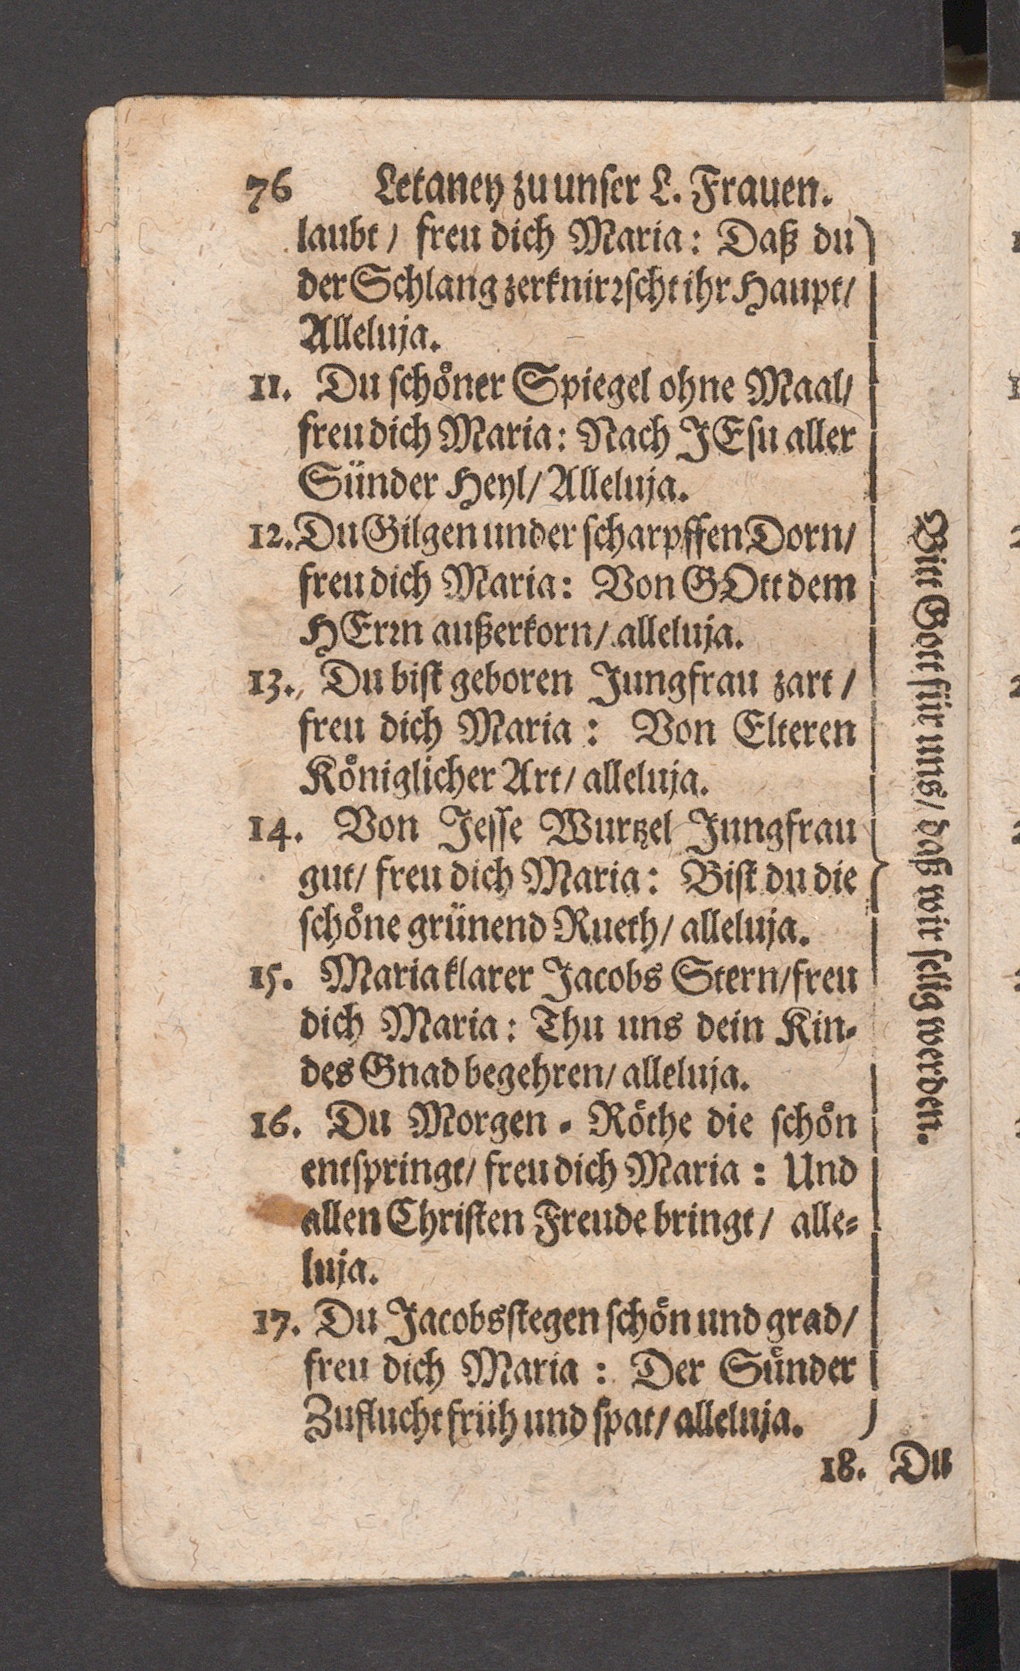 76 Letaney zu unser L. Frauen.
laubt / freu dich Maria: Daß du
der Schlang zerknirrscht ihr Haupt /
Alleluja.
11. Du schöner Spiegel ohne Maal /
freu dich Maria: Nach JEsu aller
Sünder Heyl / Alleluja.
12. Du Gilgen under scharpffen Dorn /
freu dich Maria: Von GOtt dem
HErrn außerkorn / alleluja.
13. Du bist geboren Jungfrau zart /
freu dich Maria: Von Elteren
Königlicher Art / alleluja.
14. Von Jesse Wurtzel Jungfrau
gut / freu dich Maria: Bist du die
schöne grünend Rueth / alleluja.
15. Maria klarer Jacobs Stern / freu
dich Maria: Thu uns dein Kin-
des Gnad begehren / alleluja.
16. Du Morgen-Röthe die schön
entspringt / freu dich Maria: Und
allen Christen Freude bringt / alle-
luja.
17. Du Jacobsstegen schön und grad /
freu dich Maria: Der Sünder
Zuflucht früh und spat / alleluja.
Bitt Gott für uns / daß wir selig werden.
18. Du